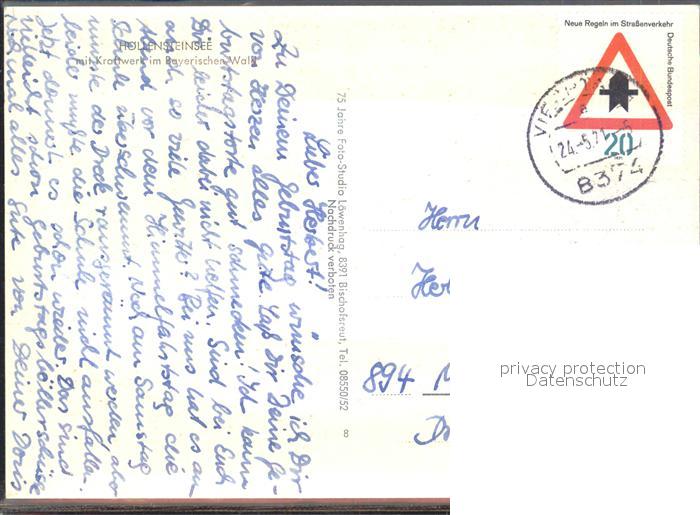 HÖLLENSTEINSEE
mit Kraftwerk im Bayerischen Wald
Lieber Herbert!
Zu Deinem Geburtstag wünsche ich Dir
von Herzen alles Gute. Laß Dir Deine Ge-
burtstagstorte gut schmecken! Ich kann
Dir leider dabei nicht helfen. Sind bei Euch
auch so viele Gewitter? Bei uns hat es am
Abend vor dem Himmelfahrtstag die
Schule überschwemmt. Noch am Samstag
mußte der Dreck rausgeräumt werden, aber
leider mußte die Schule nicht ausfallen.
Jetzt donnert es schon wieder. Das sind
vielleicht schon Geburtstagsböllerschüsse
alles Gute von Deiner Doris
75 Jahre Foto-Studio Löwenhag, 8391 Bischofsreut, Tel. 08550/52
Nachdruck verboten
8
Neue Regeln im Straßenverkehr
Deutsche Bundespost
20
24.-5.71
8374
Herrn
894
privacy protection
Datenschutz